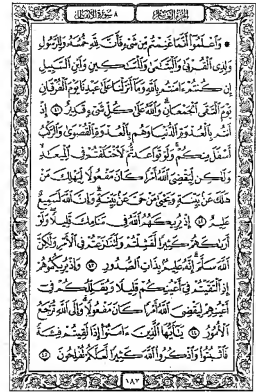 الجزء العاشر ٨ سورة الأنفال
وَٱعْلَمُوٓا۟ أَنَّمَا غَنِمْتُم مِّن شَىْءٍ فَأَنَّ لِلَّهِ خُمُسَهُۥ وَلِلرَّسُولِ
وَلِذِى ٱلْقُرْبَىٰ وَٱلْيَتَٰمَىٰ وَٱلْمَسَٰكِينِ وَٱبْنِ ٱلسَّبِيلِ
إِن كُنتُمْ ءَامَنتُم بِٱللَّهِ وَمَآ أَنزَلْنَا عَلَىٰ عَبْدِنَا يَوْمَ ٱلْفُرْقَانِ
يَوْمَ ٱلْتَقَى ٱلْجَمْعَانِ وَٱللَّهُ عَلَىٰ كُلِّ شَىْءٍ قَدِيرٌ ٤١ إِذْ
أَنتُم بِٱلْعُدْوَةِ ٱلدُّنْيَا وَهُم بِٱلْعُدْوَةِ ٱلْقُصْوَىٰ وَٱلرَّكْبُ
أَسْفَلَ مِنكُمْ وَلَوْ تَوَاعَدتُّمْ لَٱخْتَلَفْتُمْ فِى ٱلْمِيعَٰدِ
وَلَٰكِن لِّيَقْضِىَ ٱللَّهُ أَمْرًا كَانَ مَفْعُولًا لِّيَهْلِكَ مَنْ
هَلَكَ عَنۢ بَيِّنَةٍ وَيَحْيَىٰ مَنْ حَىَّ عَنۢ بَيِّنَةٍ وَإِنَّ ٱللَّهَ لَسَمِيعٌ
عَلِيمٌ ٤٢ إِذْ يُرِيكَهُمُ ٱللَّهُ فِى مَنَامِكَ قَلِيلًا وَلَوْ
أَرَىٰكَهُمْ كَثِيرًا لَّفَشِلْتُمْ وَلَتَنَٰزَعْتُمْ فِى ٱلْأَمْرِ وَلَٰكِنَّ
ٱللَّهَ سَلَّمَ إِنَّهُۥ عَلِيمٌۢ بِذَاتِ ٱلصُّدُورِ ٤٣ وَإِذْ يُرِيكُمُوهُمْ
إِذِ ٱلْتَقَيْتُمْ فِىٓ أَعْيُنِكُمْ قَلِيلًا وَيُقَلِّلُكُمْ فِىٓ
أَعْيُنِهِمْ لِيَقْضِىَ ٱللَّهُ أَمْرًا كَانَ مَفْعُولًا وَإِلَى ٱللَّهِ تُرْجَعُ
ٱلْأُمُورُ ٤٤ يَٰٓأَيُّهَا ٱلَّذِينَ ءَامَنُوٓا۟ إِذَا لَقِيتُمْ فِئَةً
فَٱثْبُتُوا۟ وَٱذْكُرُوا۟ ٱللَّهَ كَثِيرًا لَّعَلَّكُمْ تُفْلِحُونَ ٤٥
١٨٢